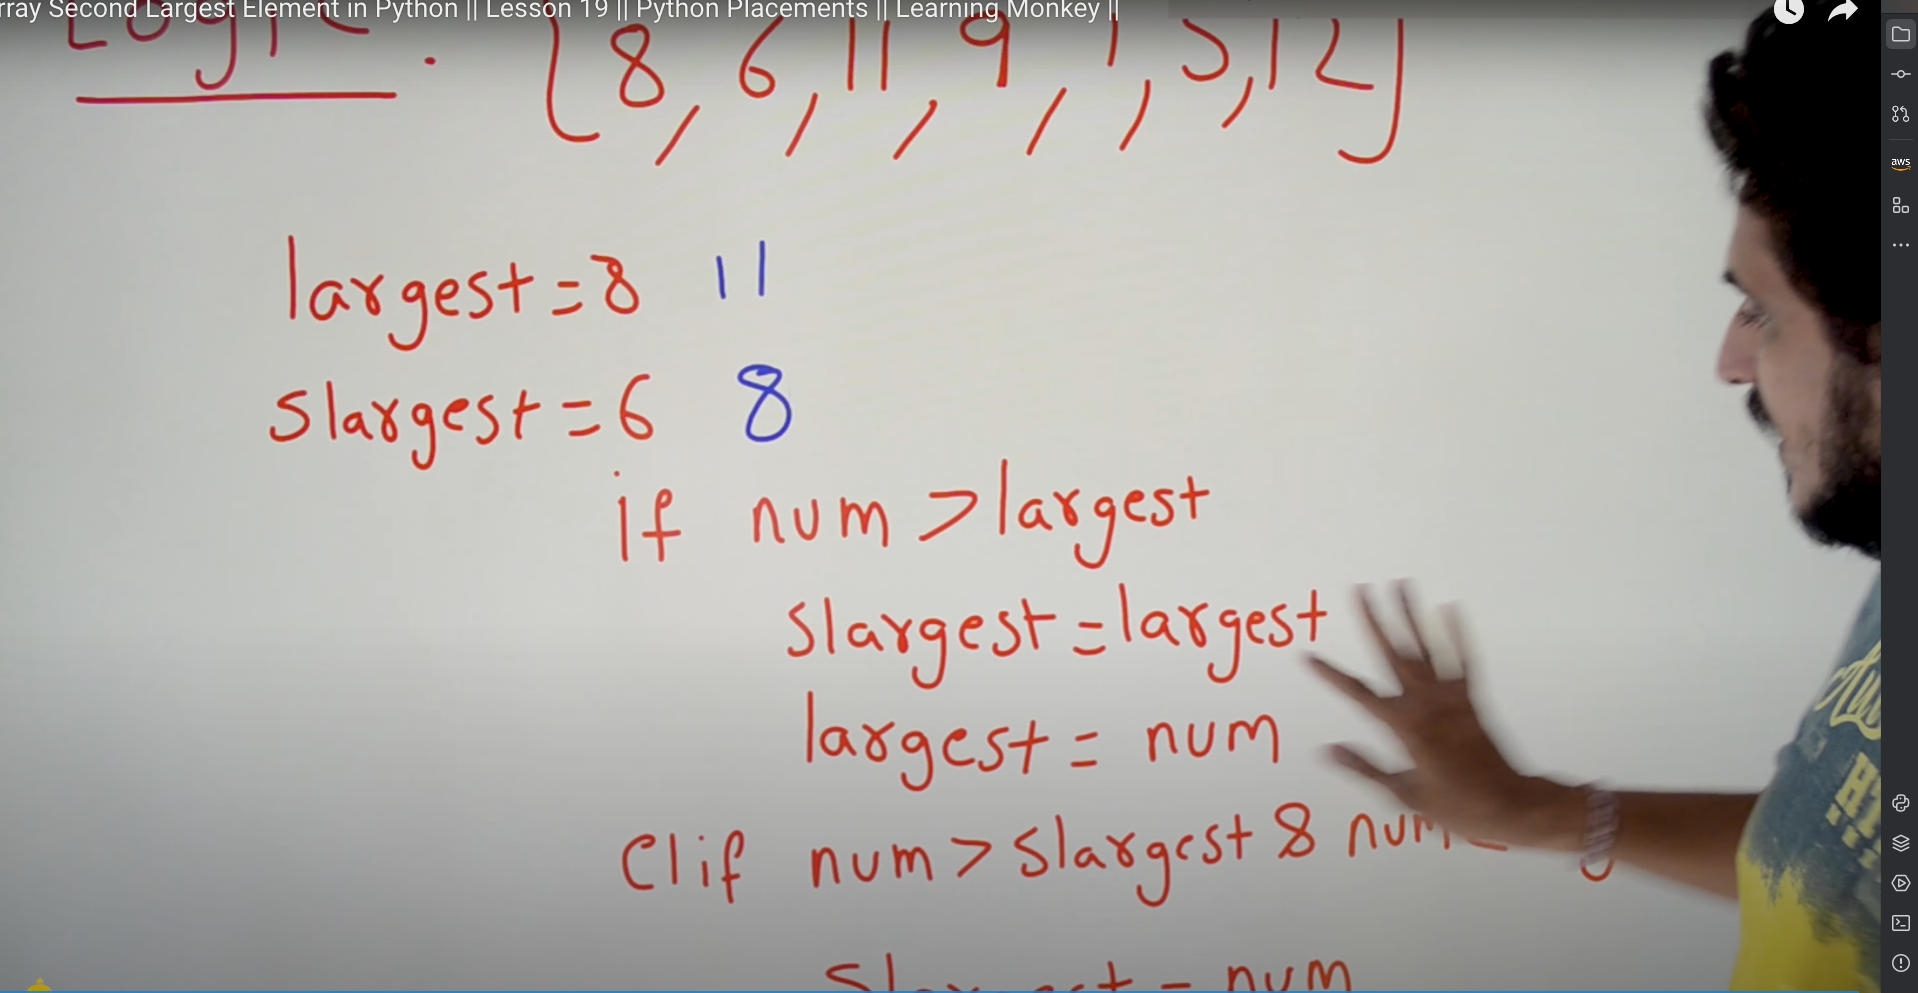 rray Second Largest Element in Python || Lesson 19 || Python Placements || Learning Monkey ||
Logic : [8, 6, 11, 9, 1, 5, 12]
largest = 8 11
slargest = 6 8
if num > largest
slargest = largest
largest = num
elif num > slargest &
slargest = num
aws